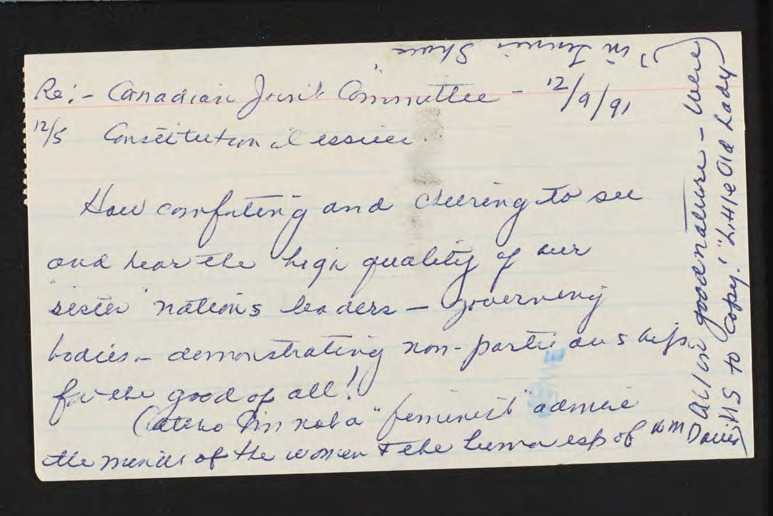 Re:- Canadian Joint Committee - 12/9/91
12/5 Constitutional issues.
How comforting and cheering to see
and hear the high quality of our
"sister" nations leaders - governing
bodies - demonstrating non-partisanship
for the good of all!
(altho I'm not a "feminist" admire
the minds of the women & the humor esp of Wm Davis
All in good nature - Were
US to copy! "Little Old Lady
in Tennis Shoes"